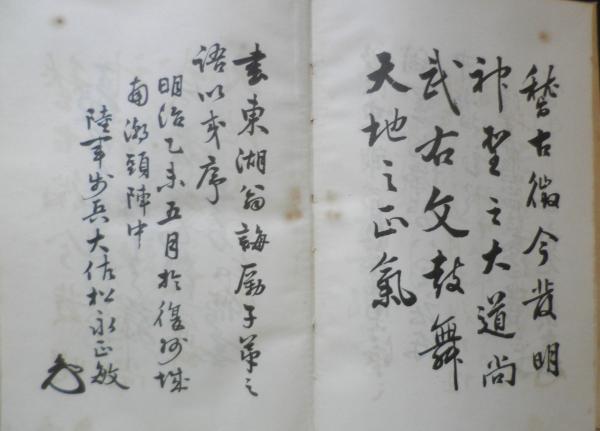 稽古徴今発明
神聖之大道尚
武右文鼓舞
天地之正氣
書東湖翁誨励子弟之
語以代序
明治乙未五月於復州城
南潮頭陣中
陸軍歩兵大佐松永正敏